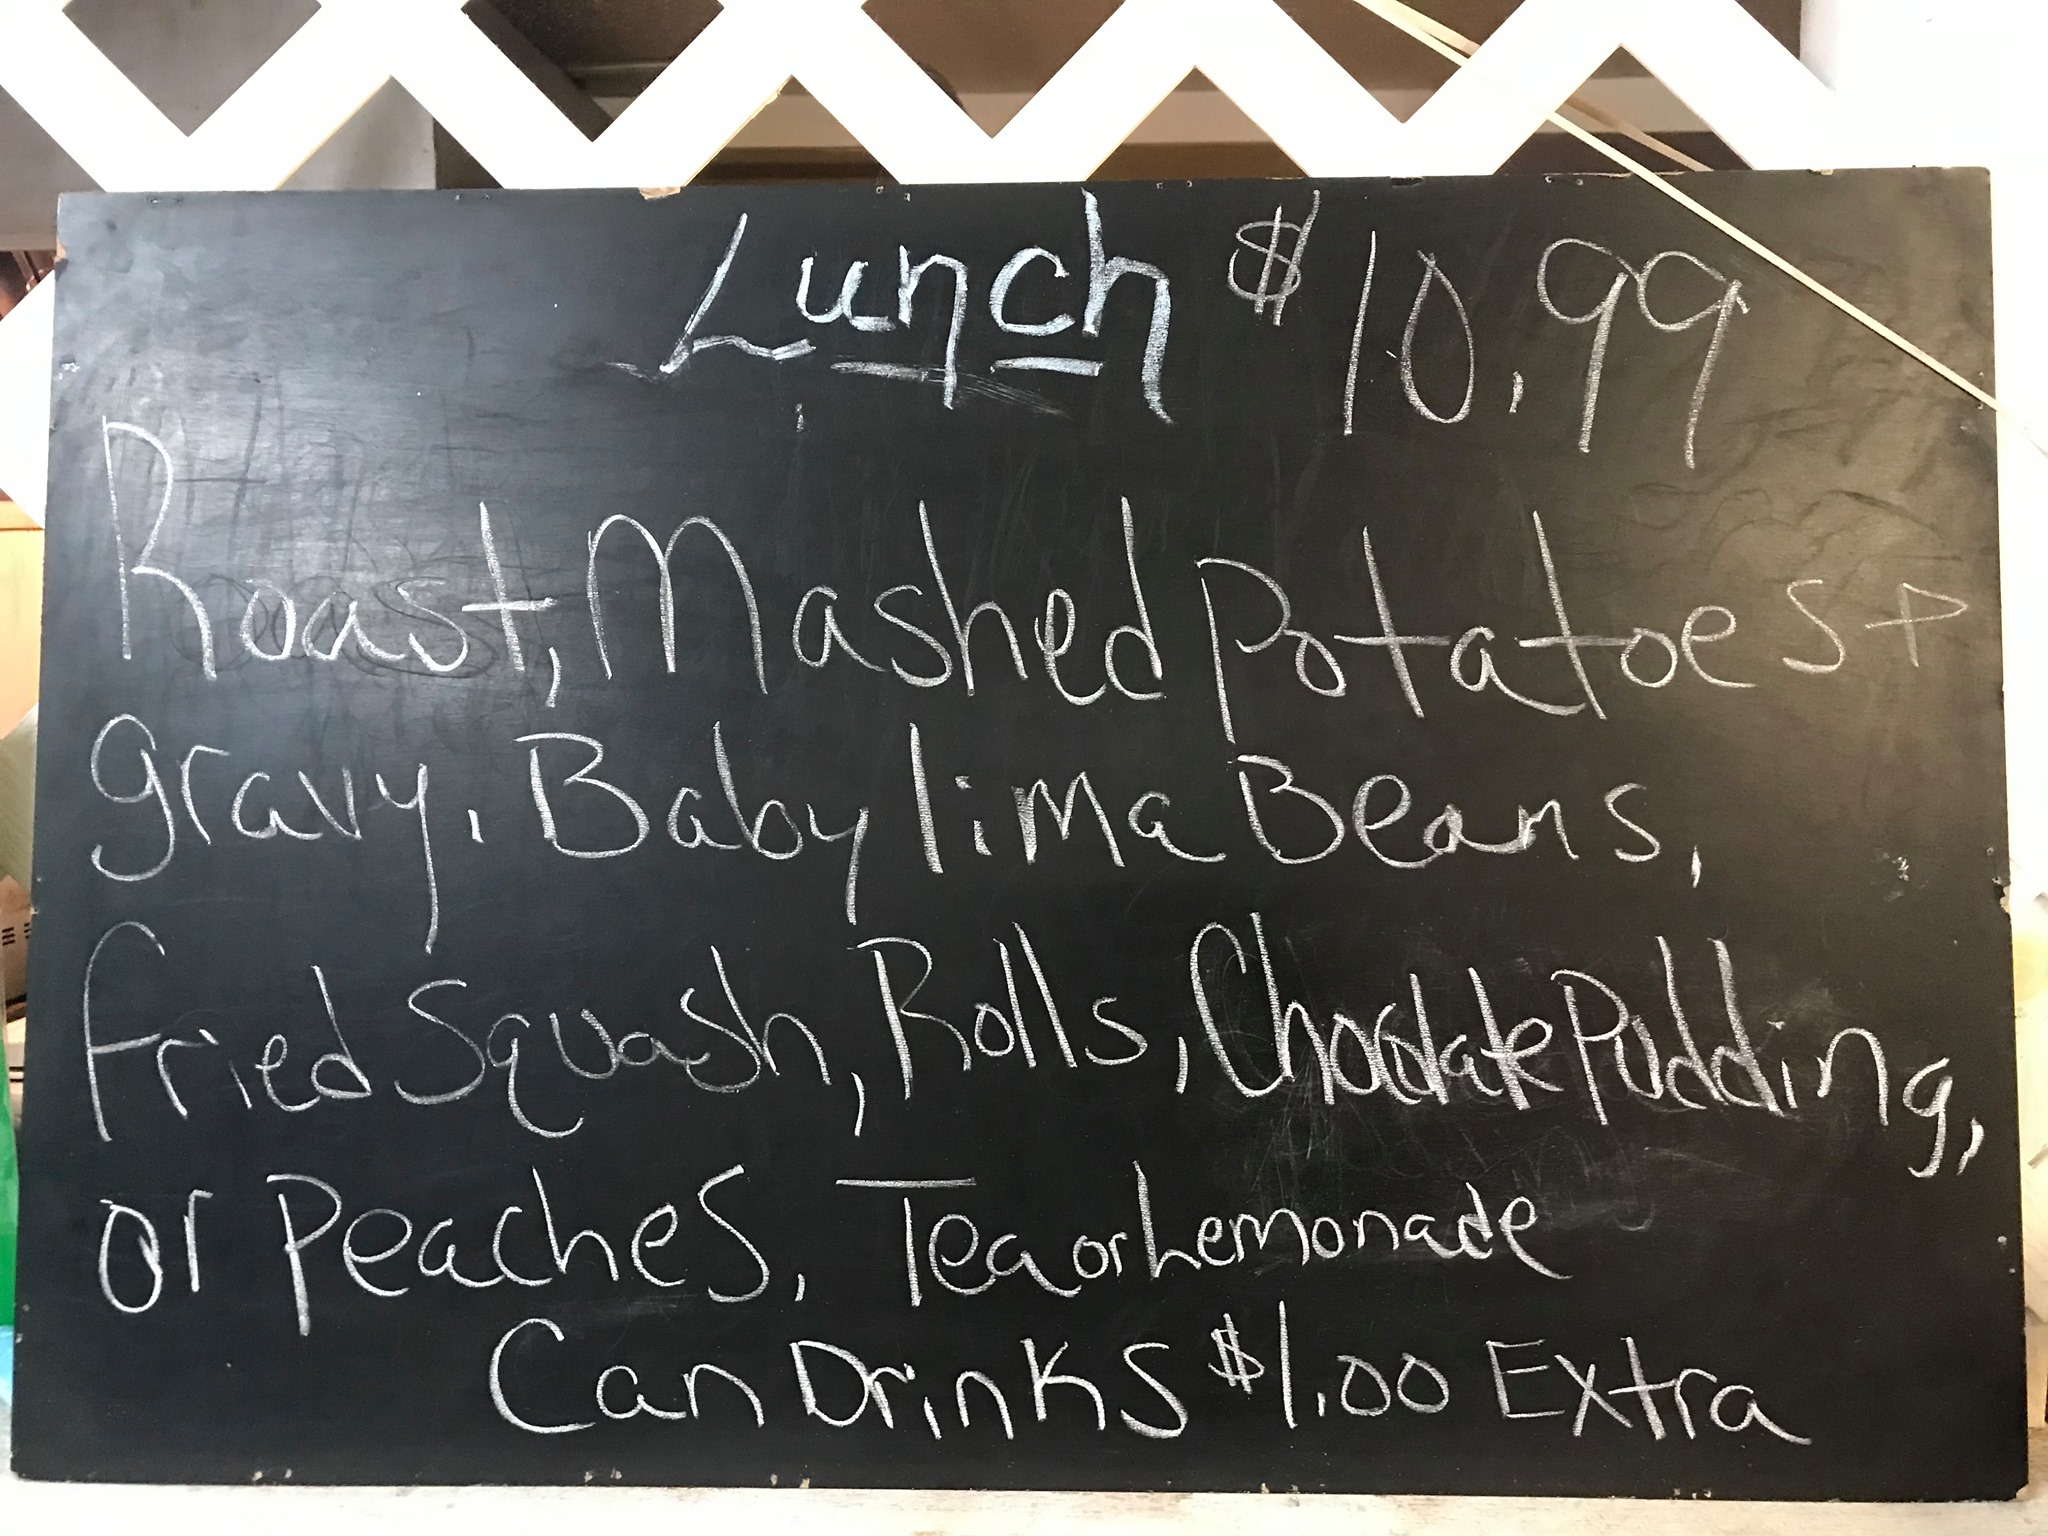 Lunch $10.99
Roast, Mashed Potatoes +
gravy, Baby lima Beans,
Fried Squash, Rolls, Choclate Pudding,
or Peaches, Tea or Lemonade
Can Drinks $1.00 Extra